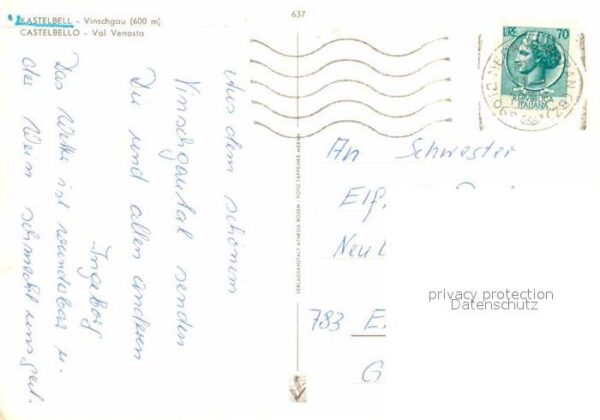 KASTELBELL - Vinschgau (600 m)
CASTELBELLO - Val Venosta
637
LIRE 70
REPUBBLICA
ITALIANA
Aus dem schönen
Vinschgautal senden
Dir und allen anderen
Ingeborg
Das Wetter ist wunderbar u.
der Wein schmeckt uns gut.
An Schwester
Elf
Neu
783 E
G
privacy protection
Datenschutz